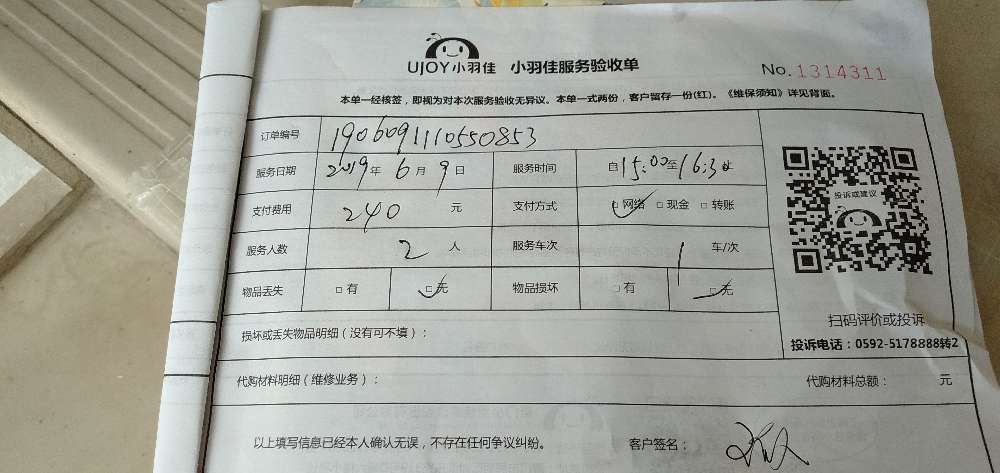 UJOY 小羽佳 小羽佳服务验收单 No. 1314311
本单一经核签，即视为对本次服务验收无异议。本单一式两份，客户留存一份(红)。《维保须知》详见背面。
订单编号 1906091110550853
服务日期 2019年 6月 9日 服务时间 自 15:00至 16:30
支付费用 240 元 支付方式 □网络 □现金 □转账
服务人数 2 人 服务车次 1 车/次
物品丢失 □有 □无 物品损坏 □有 □无
投诉或建议
扫码评价或投诉
投诉电话：0592-5178888转2
损坏或丢失物品明细（没有可不填）：
代购材料明细（维修业务）： 代购材料总额： 元
以上填写信息已经本人确认无误，不存在任何争议纠纷。 客户签名：